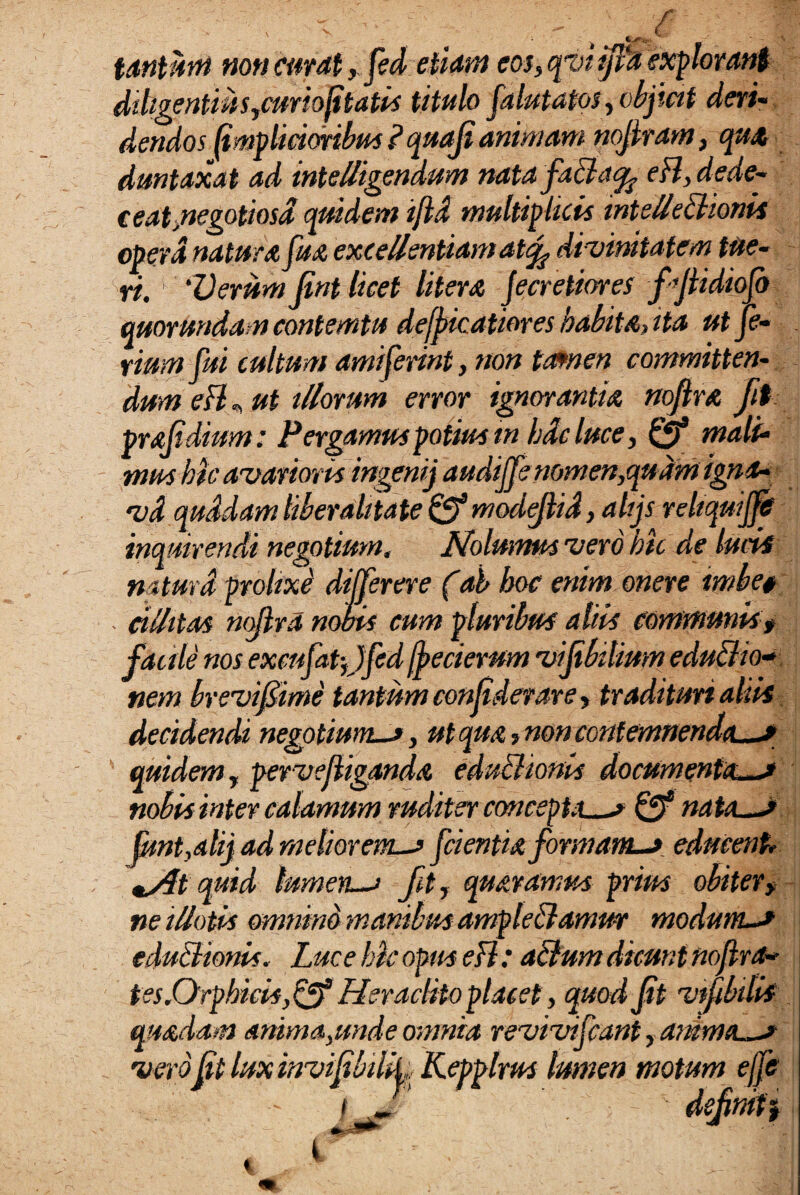 tantùm non curat, ſed etiam eos, qvi iſta explorant
diligentiùs, curioſitatis titulo ſalutatos, objicit deri-
dendos ſimplicioribus? quaſi animam noſtram, quæ
duntaxat ad intelligendum nata factaq́ꝫ eſt, dede-
ceat, negotiosâ quidem iſtâ multiplicis intellectionis
operâ naturæ ſuæ excellentiam atq́ꝫ divinitatem tue-
ri. Verùm ſint licet literæ ſecretiores faſtidioſo
quorundam contemtu deſpicatiores habitæ, ita ut ſe-
rium ſui cultum amiſerint, non tamen committen-
dum eſt, ut illorum error ignorantiæ noſtræ ſit
præſidium: Pergamus potius in hâc luce, & mali-
mus hîc avarioris ingenij audiſſe nomen, quàm igna-
vâ quâdam liberalitate & modeſtiâ, alijs reliquiſſe
inquirendi negotium. Nolumus verò hîc de lucis
naturâ prolixè diſſerere (ab hoc enim onere imbe-
cillitas noſtra nobis cum pluribus aliis communis,
facilè nos excuſat;) ſed ſpecierum viſibilium eductio-
nem breviſſimè tantùm conſiderare, tradituri aliis
decidendi negotium, ut quæ, non contemnenda
quidem, perveſtiganda eductionis documenta
nobis inter calamum ruditer concepta & nata
ſunt, alij ad meliorem ſcientiæ formam educent.
At quid lumen ſit, quæramus prius obiter,
ne illotis omninò manibus amplectamur modum
eductionis. Luce hîc opus eſt: actum dicunt noſtra-
tes. Orphicis, & Heraclito placet, quod ſit viſibilis
quædam anima, unde omnia reviviſcant, anima
verò ſit lux inviſibilis. Kepplrus lumen motum eſſe
definit;